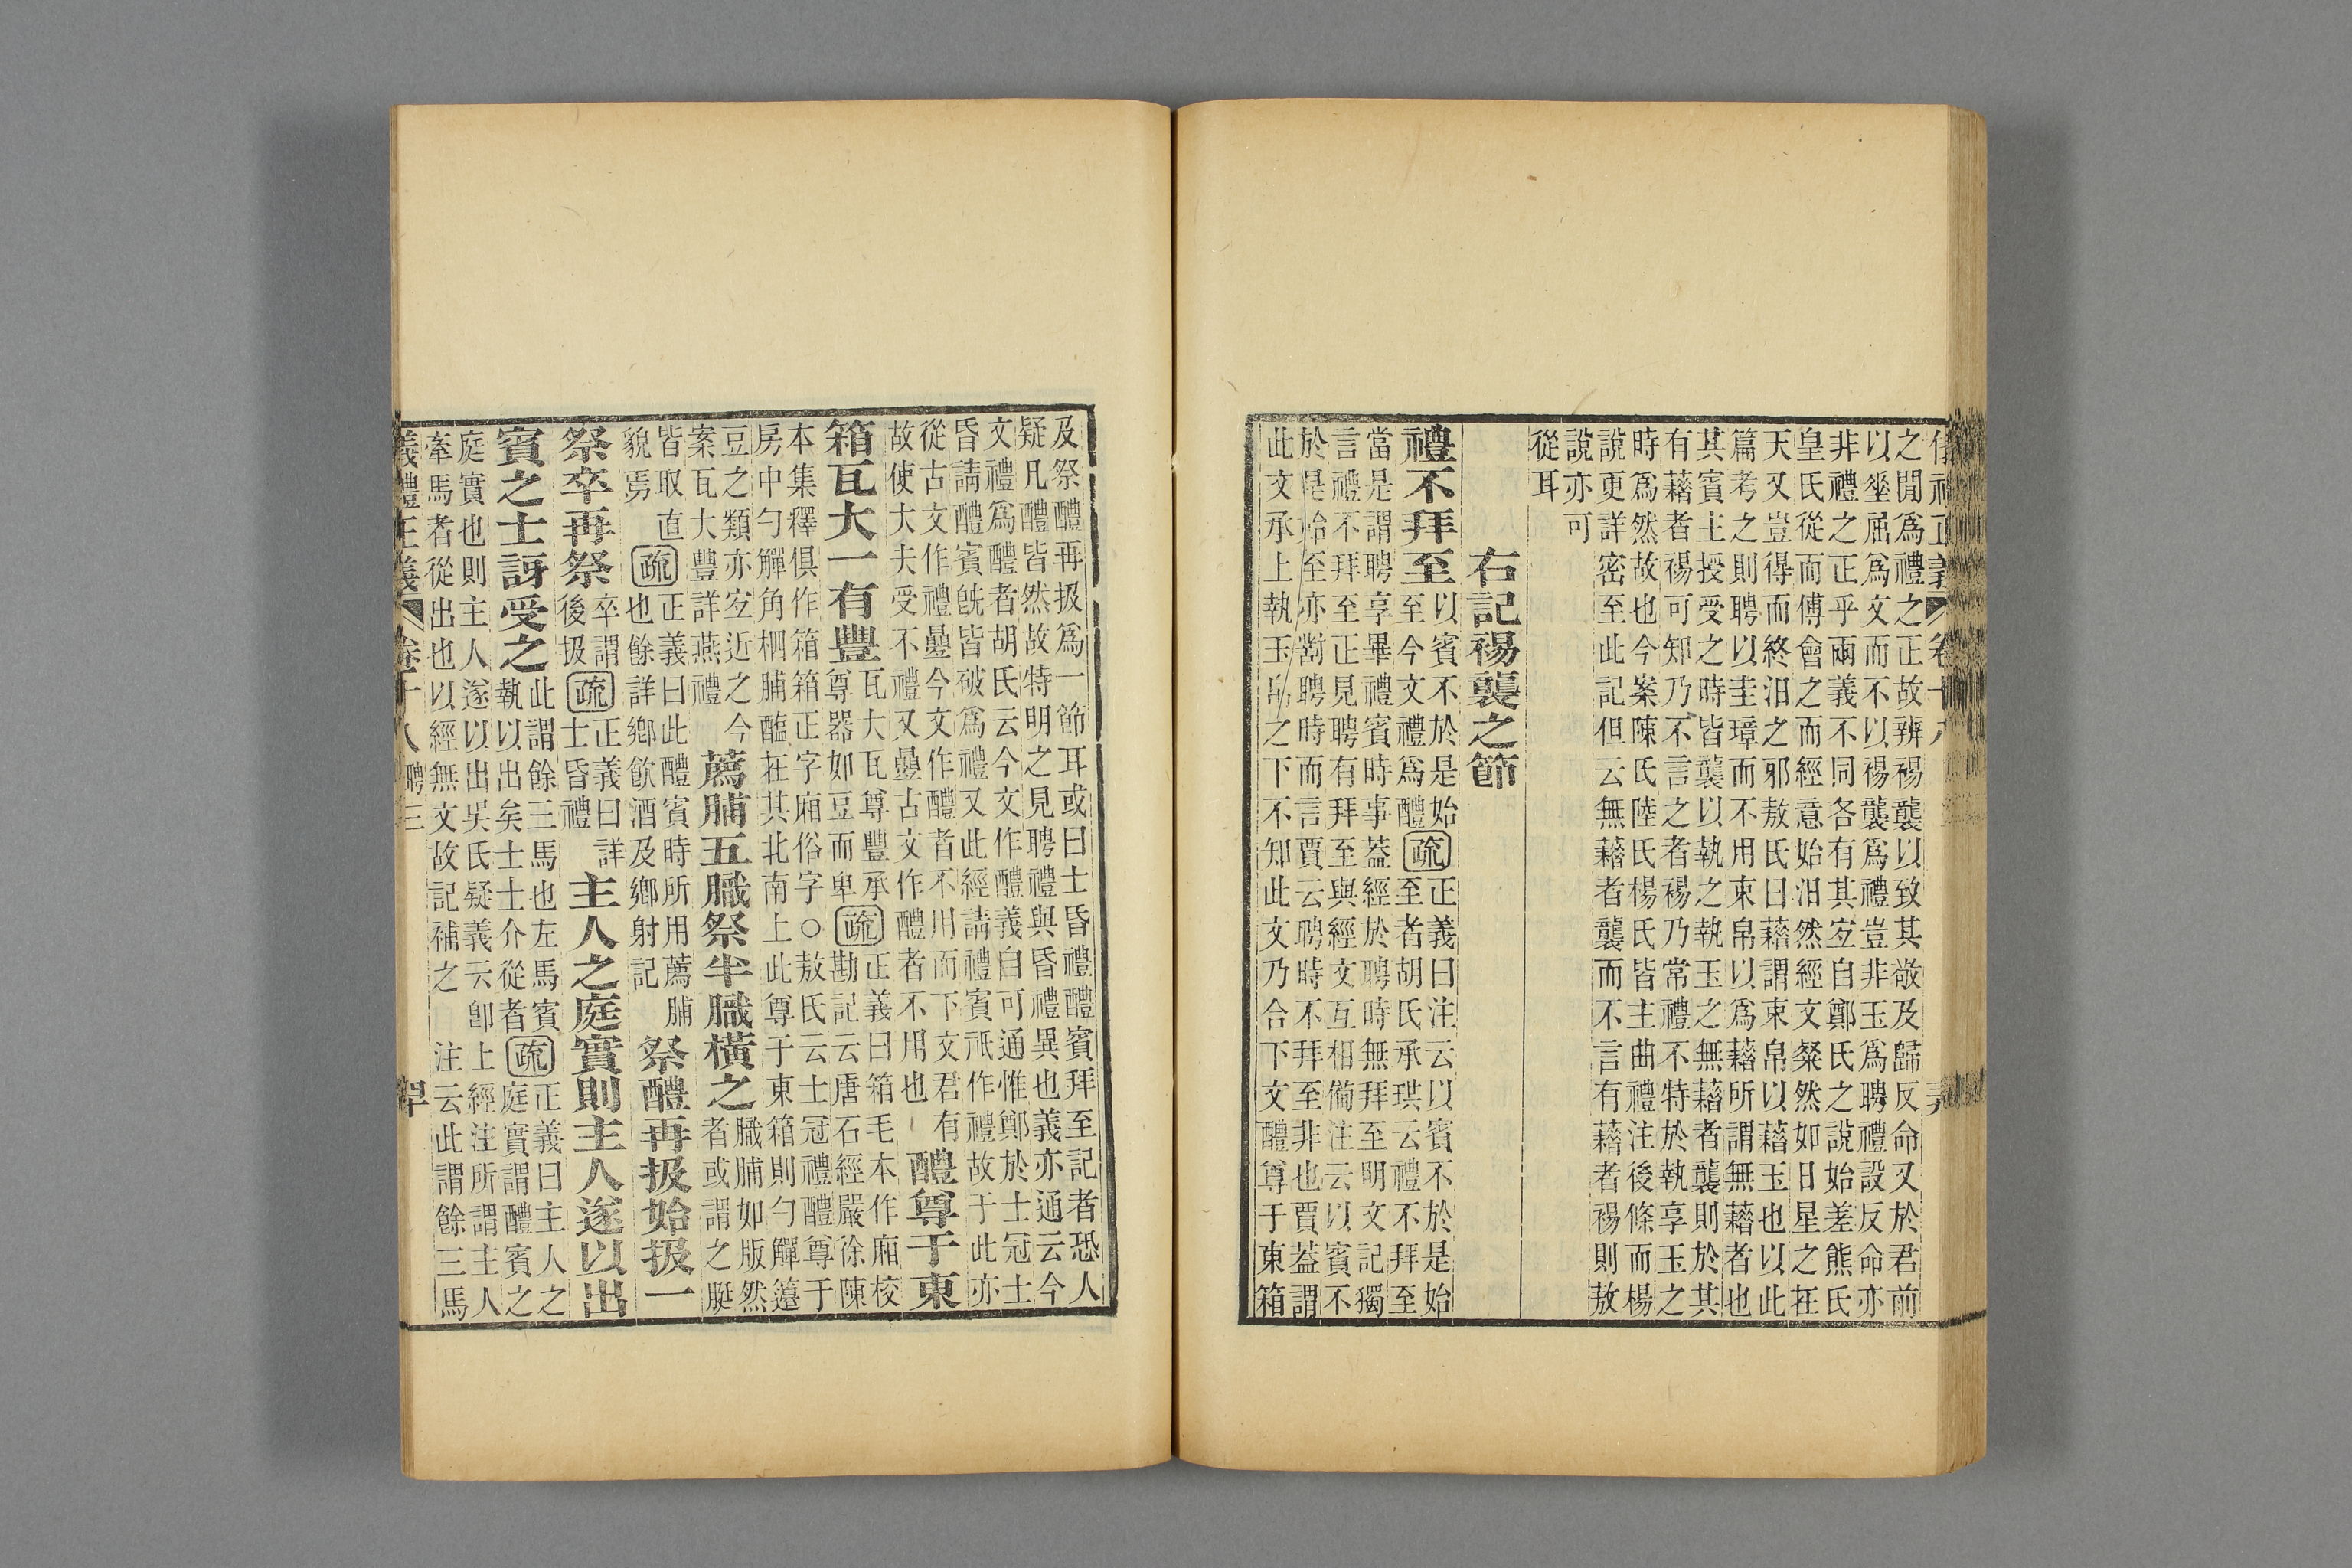 之閒爲禮之正故辨裼襲以致其敬及歸反命又於君前
以坐屈爲文而不以裼襲爲禮豈非玉爲聘禮設反命亦
非禮之正乎兩義不同各有其宐自鄭氏之說始差熊氏
皇氏從而傅會之而經意始汨然經文粲然如日星之在
天又豈得而終汨之邪敖氏曰藉謂束帛以藉玉也以此
篇考之則聘以圭璋而不用束帛以爲藉所謂無藉者也
其賓主授受之時皆襲以執之執玉之無藉者襲則於其
有藉者裼可知乃不言之者裼乃常禮不特於執享玉之
時爲然故也今案陳氏陸氏楊氏皆主曲禮注後條而楊
說更詳密至此記但云無藉者襲而不言有藉者裼則敖
說亦可
從耳
右記裼襲之節
禮不拜至
以賓不於是始
至今文禮爲醴
疏
正義曰注云以賓不於是始
至者胡氏承珙云禮不拜至
當是謂聘享畢禮賓時事蓋經於聘時無拜至明文記獨
言禮不拜至正見聘有拜至與經文互相備注云以賓不
於是始至亦對聘時而言賈云聘時不拜至非也賈蓋謂
此文承上執玉帛之下不知此文乃合下文醴尊于東箱
及祭醴再扱爲一節耳或曰士昏禮醴賓拜至記者恐人
疑凡醴皆然故特明之見聘禮與昏禮異也義亦通云今
文禮爲醴者胡氏云今文作醴義自可通惟鄭於士冠士
昏請醴賓旣皆破爲禮又此經請禮賓祇作禮故于此亦
從古文作禮疊今文作醴者不用而下文君有
故使大夫受不禮又疊古文作醴者不用也
醴尊于東
箱瓦大一有豐
瓦大瓦尊豐承
尊器如豆而卑
疏
正義曰箱毛本作廂校
勘記云唐石經嚴徐陳
本集釋俱作箱箱正字廂俗字○敖氏云士冠禮醴尊于
房中勺觶角柶脯醢在其北南上此尊于東箱則勺觶籩
豆之類亦宐近之今
案瓦大豐詳燕禮
薦脯五膱祭半膱橫之
膱脯如版然
者或謂之脡
皆取直
貌焉
疏
正義曰此醴賓時所用薦脯
也餘詳鄉飮酒及鄉射記
祭醴再扱始扱一
祭卒再祭
卒謂
後扱
疏
正義曰詳
士昏禮
主人之庭實則主人遂以出
賓之士訝受之
此謂餘三馬也左馬賓
執以出矣士士介從者
疏
正義曰主人之
庭實謂醴賓之
庭實也則主人遂以出吳氏疑義云卽上經注所謂主人
牽馬者從出也以經無文故記補之 注云此謂餘三馬
義禮正義 卷十八 聘三